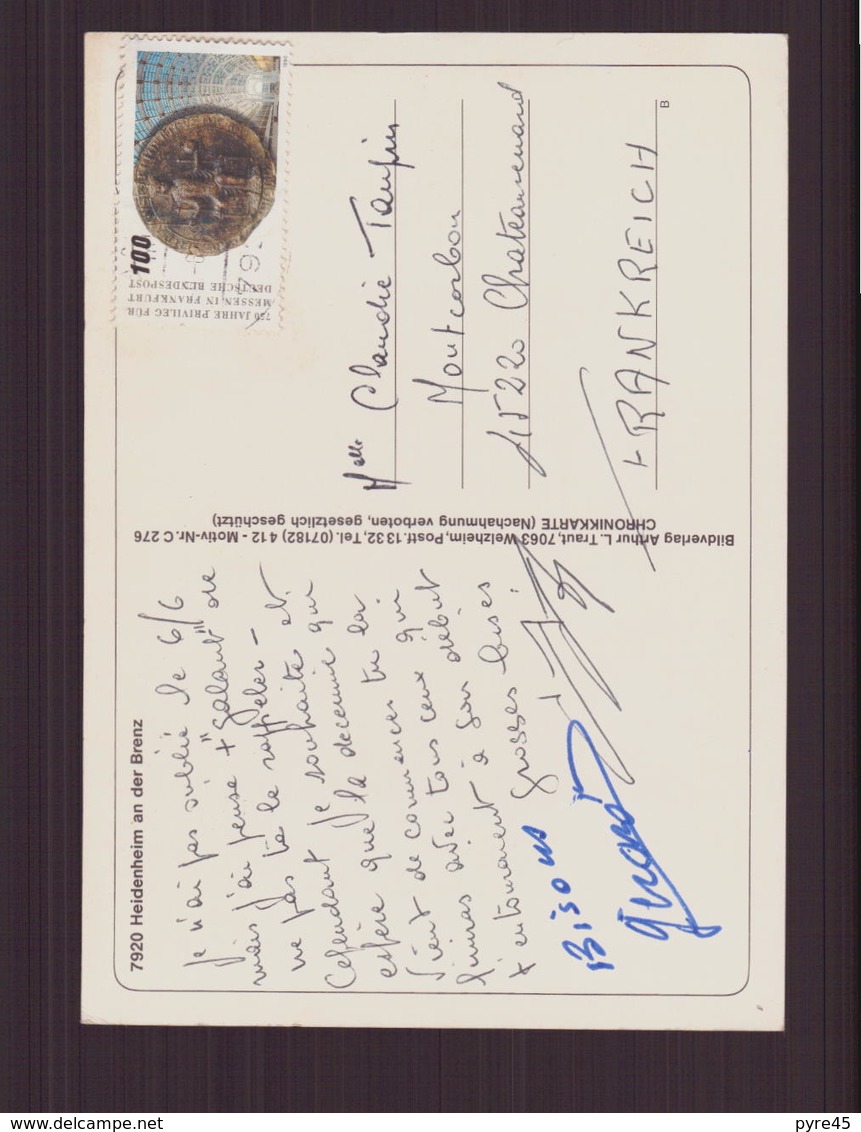 7920 Heidenheim an der Brenz
Je n'ai pas oublié le 6/6
mais j'ai pensé + "galant" de
ne pas te le rappeler -
Cependant je souhaite et
espère que la decennie qui
vient de commencer tu la
finiras avec tous ceux qui
t'entourarent à son début
Grosses bises.
Bisous
Bildverlag Arthur L. Traut, 7063 Welzheim, Postf. 1332, Tel. (07182) 412 - Motiv-Nr. C 276
CHRONIKKARTE (Nachahmung verboten, gesetzlich geschützt)
750 JAHRE PRIVILEG FÜR
MESSEN IN FRANKFURT
DEUTSCHE BUNDESPOST
100
792
Melle Claudie Taupin
Montcorbon
45220 Chateaurenard
FRANKREICH
B
delcampe.net
pyre45